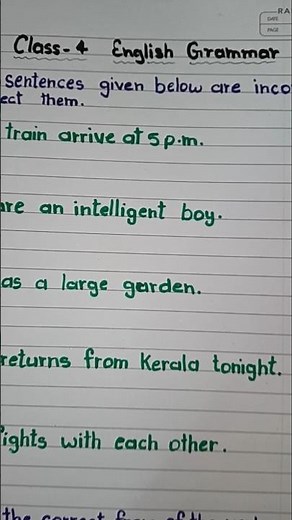 RA
DATE
PAGE
Class-4 English Grammar
sentences given below are inco
ect them.
train arrive at 5 p.m.
are an intelligent boy.
as a large garden.
returns from Kerala tonight.
ights with each other.
the correct